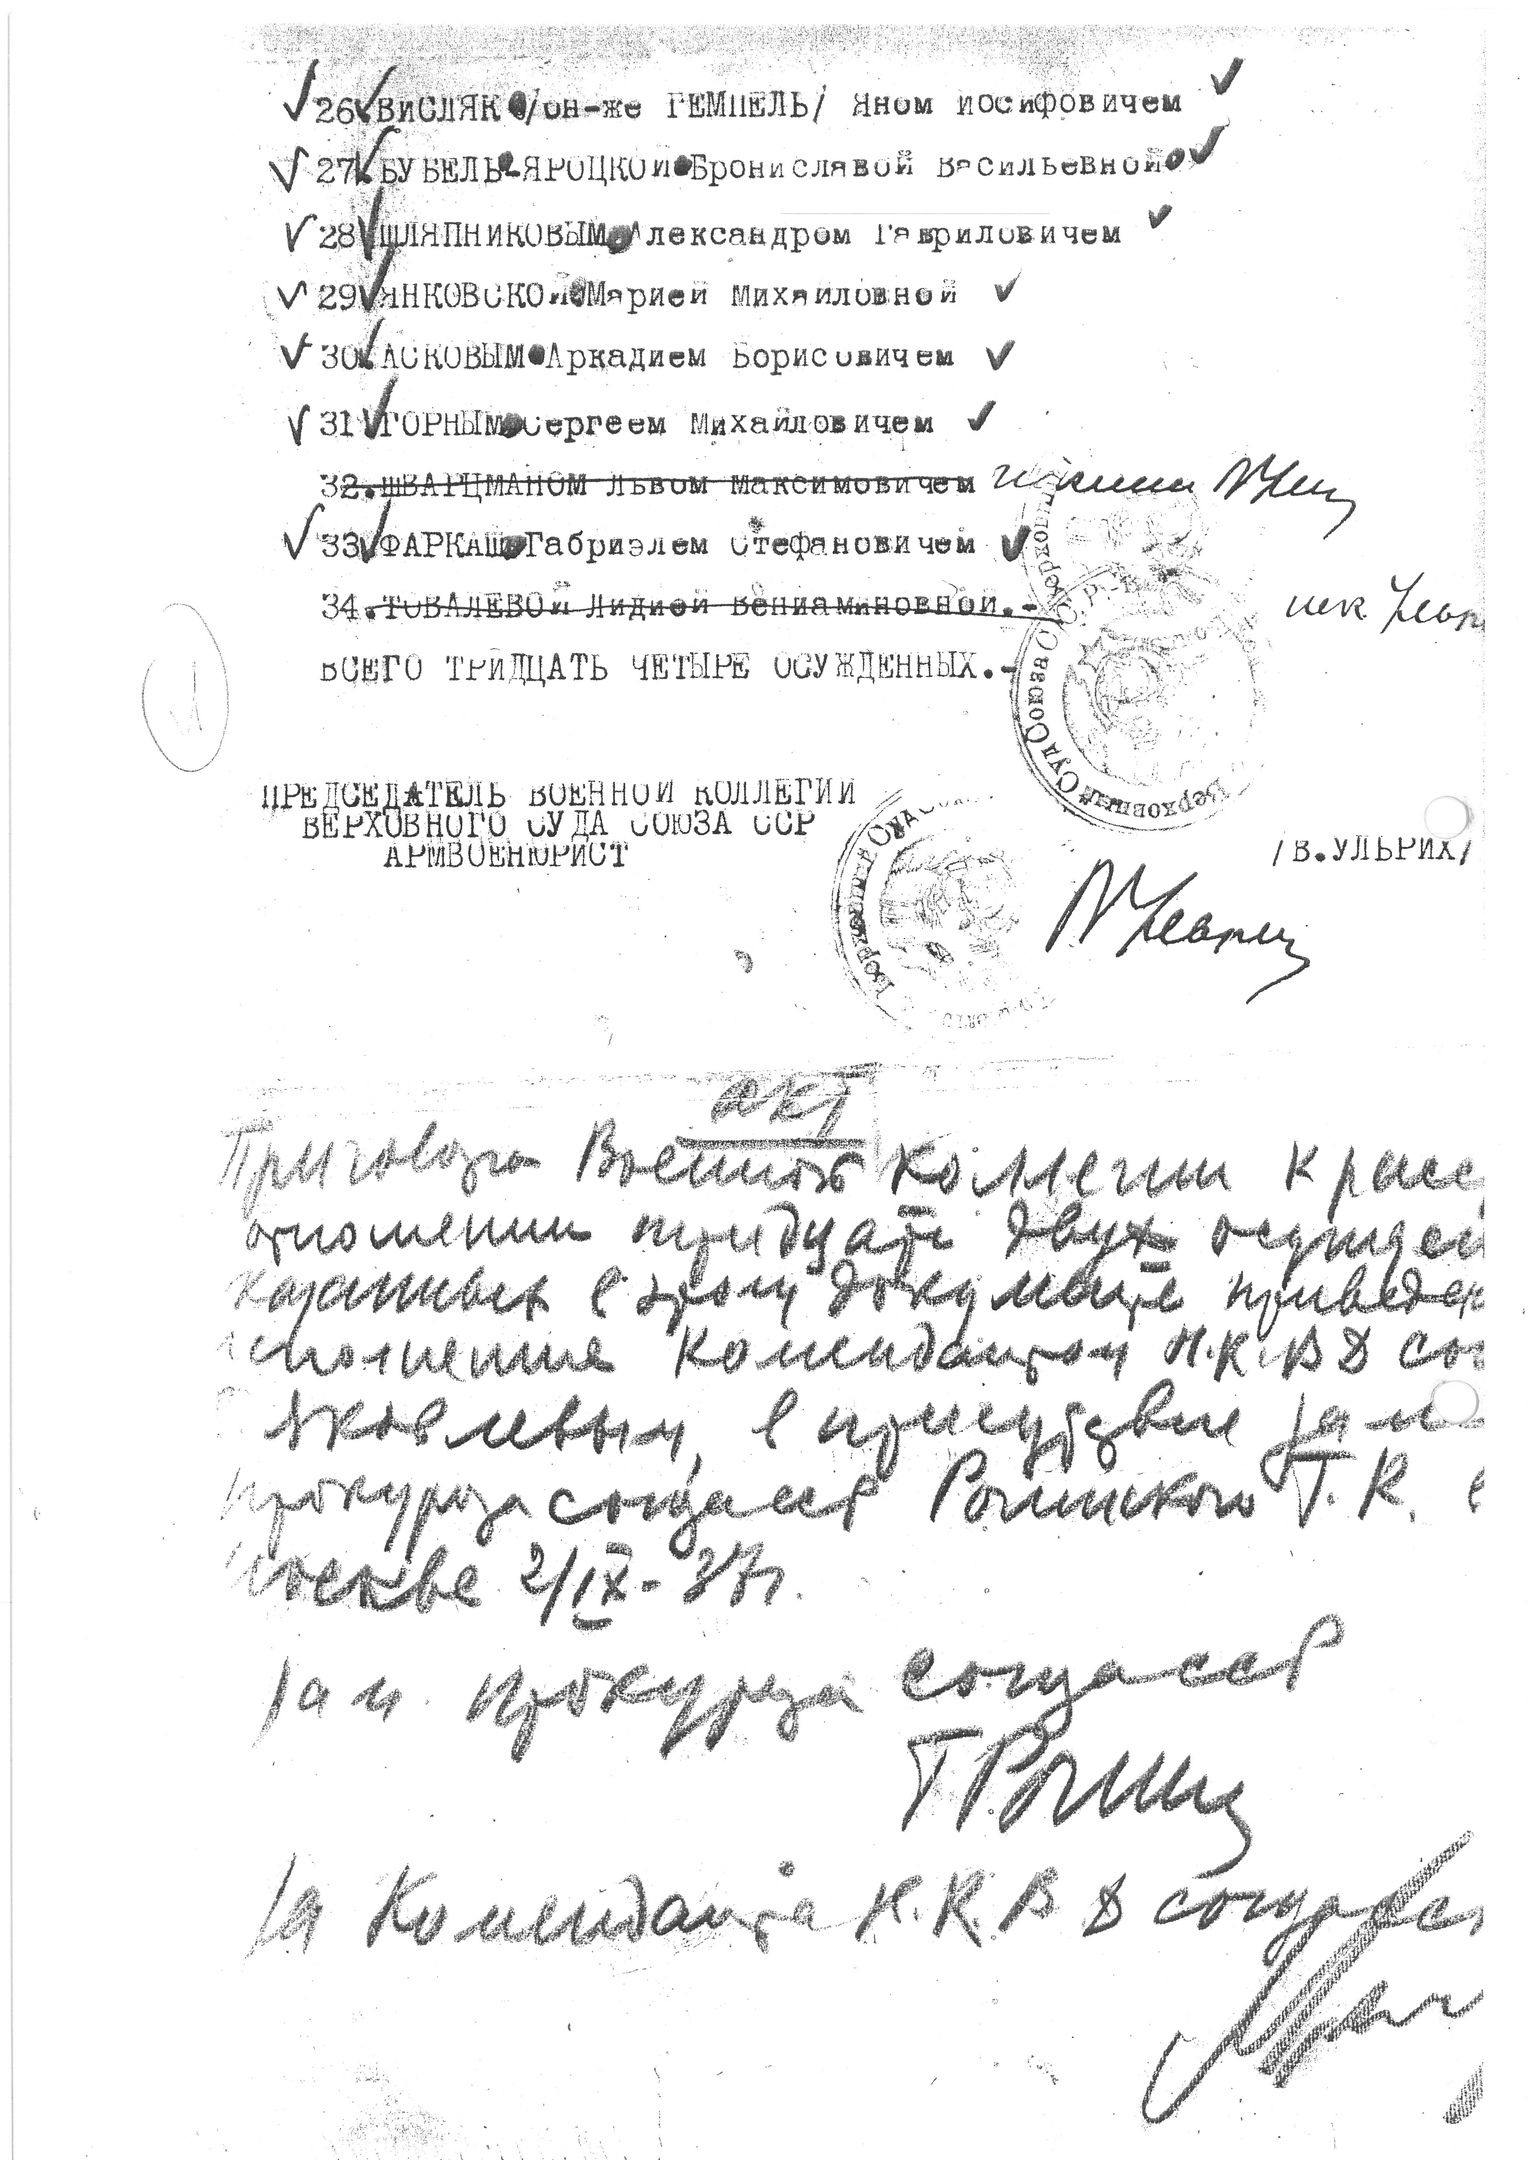 26. ВИСЛЯК /он-же ГЕМПЕЛЬ/ Яном Иосифовичем
27. БУБЕЛЬ-ЯРОЦКОЙ Брониславой Васильевной
28. ШЛЯПНИКОВЫМ Александром Гавриловичем
29. ЯНКОВСКОЙ Марией Михайловной
30. АСКОВЫМ Аркадием Борисовичем
31. ГОРНЫМ Сергеем Михайловичем
32. ШВАРЦМАНОМ Львом Максимовичем
33. ФАРКАШ Габриэлем Стефановичем
34. ТОВАЛЕВОЙ Лидией Вениаминовной.-
ВСЕГО ТРИДЦАТЬ ЧЕТЫРЕ ОСУЖДЕННЫХ.-
Верховный Суд Союза С.С.Р.
ПРЕДСЕДАТЕЛЬ ВОЕННОЙ КОЛЛЕГИИ
ВЕРХОВНОГО СУДА СОЮЗА ССР
АРМВОЕНЮРИСТ
/В.УЛЬРИХ/
Верховный Суд Со
акт
Приговора Военной Коллегии к рассt
отношении тридцать двух осужден
казанных в этом документе приведен
исполнение Комендантом Н.К.В.Д со
Яковлевым, в присутствие зам
прокурора союза ССР Рогинского Г.К. в
Москве 2/IX-37г.
зам. прокурора союза ССР
Г Рогин
за Коменданта Н.К.В.Д союза сс